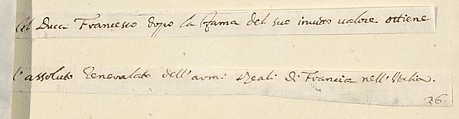 Il Duca Francesco doppo la fama del suo inuitto ualore ottiene
l'assoluto Generalato dell'armi Reali di Francia nell'Italia.
36